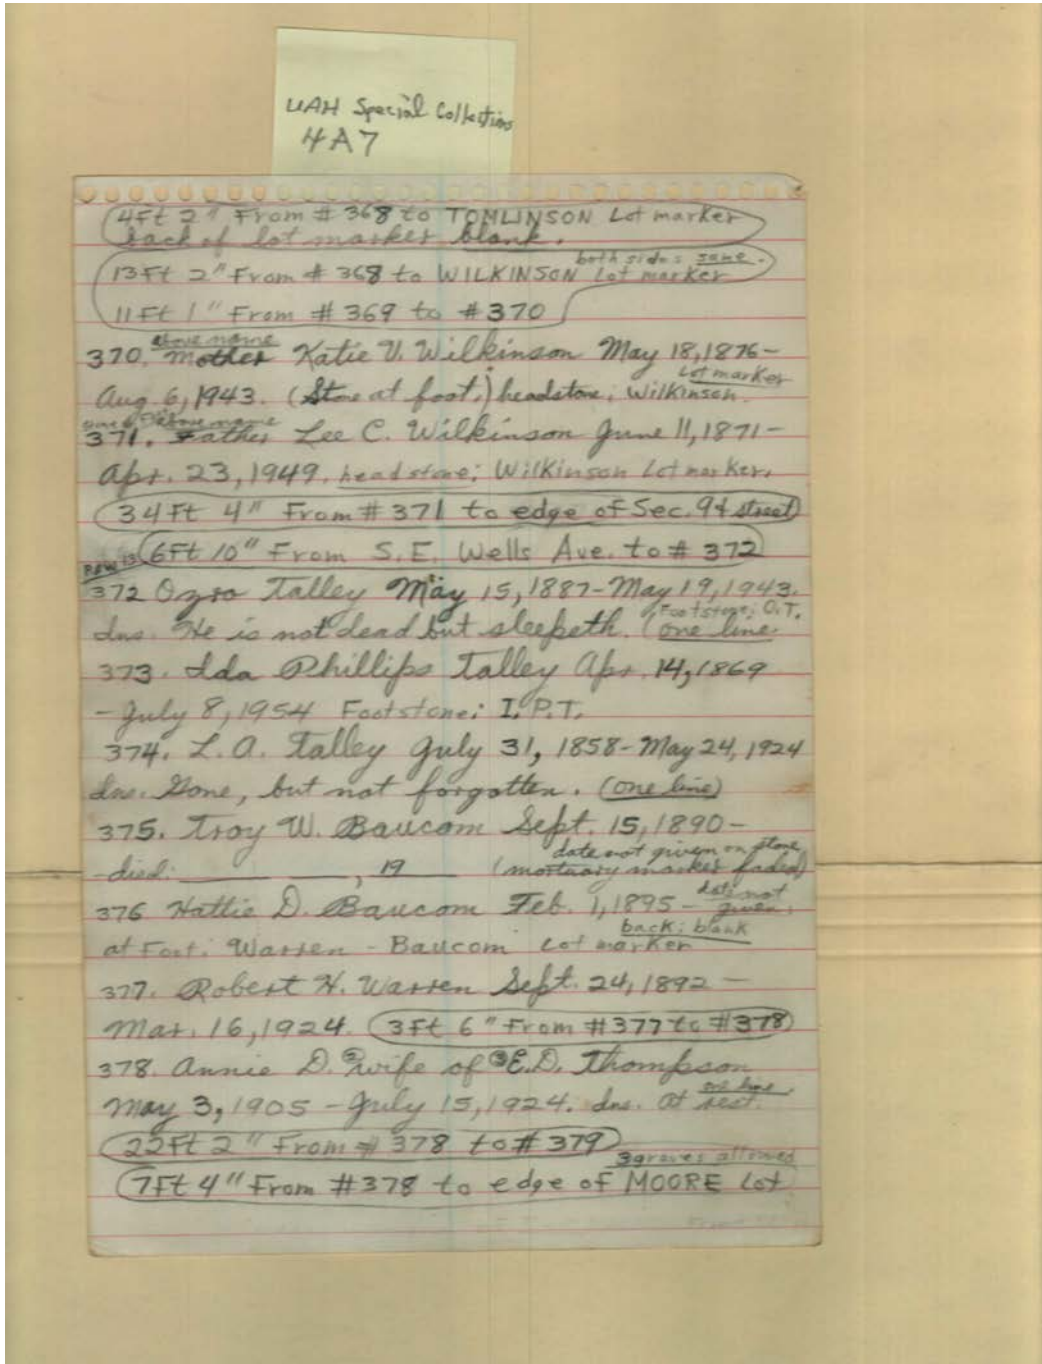 UAH Special Collections
4A7
4Ft 2" From # 368 to TOMLINSON Lot marker
back of lot marker blank.
both sides same.
13Ft 2" From # 368 to WILKINSON Lot marker
11Ft 1" From # 369 to # 370
above name
370. Mother Katie V. Wilkinson May 18, 1876-
Lot marker
Aug. 6, 1943. (Stone at foot.) headstone; Wilkinson.
above name
371. Father Lee C. Wilkinson June 11, 1871-
Apr. 23, 1949. headstone; Wilkinson Lot marker.
34Ft 4" From # 371 to edge of Sec. 9 & street
6Ft 10" From S.E. Wells Ave. to # 372
Row 13
372 Ozro Talley May 15, 1887-May 19, 1943.
Footstone; O.T.
dns. He is not dead but sleepeth. (one line.
373. Ida Phillips Talley Apr. 14, 1869
- July 8, 1954 Footstone; I.P.T.
374. L.A. Talley July 31, 1858-May 24, 1924
dns. Gone, but not forgotten. (one line)
375. Troy W. Baucom Sept. 15, 1890-
date not given on stone
-died: ________, 19 (mortuary marker faded)
376 Hattie D. Baucom Feb. 1, 1895- date not given.
back; blank
at Foot; Warren - Baucom Lot marker
377. Robert H. Warren Sept. 24, 1892 -
Mar. 16, 1924. 3Ft 6" From #377 to #378
378. Annie D. wife of E.D. Thompson
one line.
May 3, 1905 - July 15, 1924. dns. At rest.
22Ft 2" From # 378 to # 379
3 graves allowed
7Ft 4" From #378 to edge of MOORE Lot